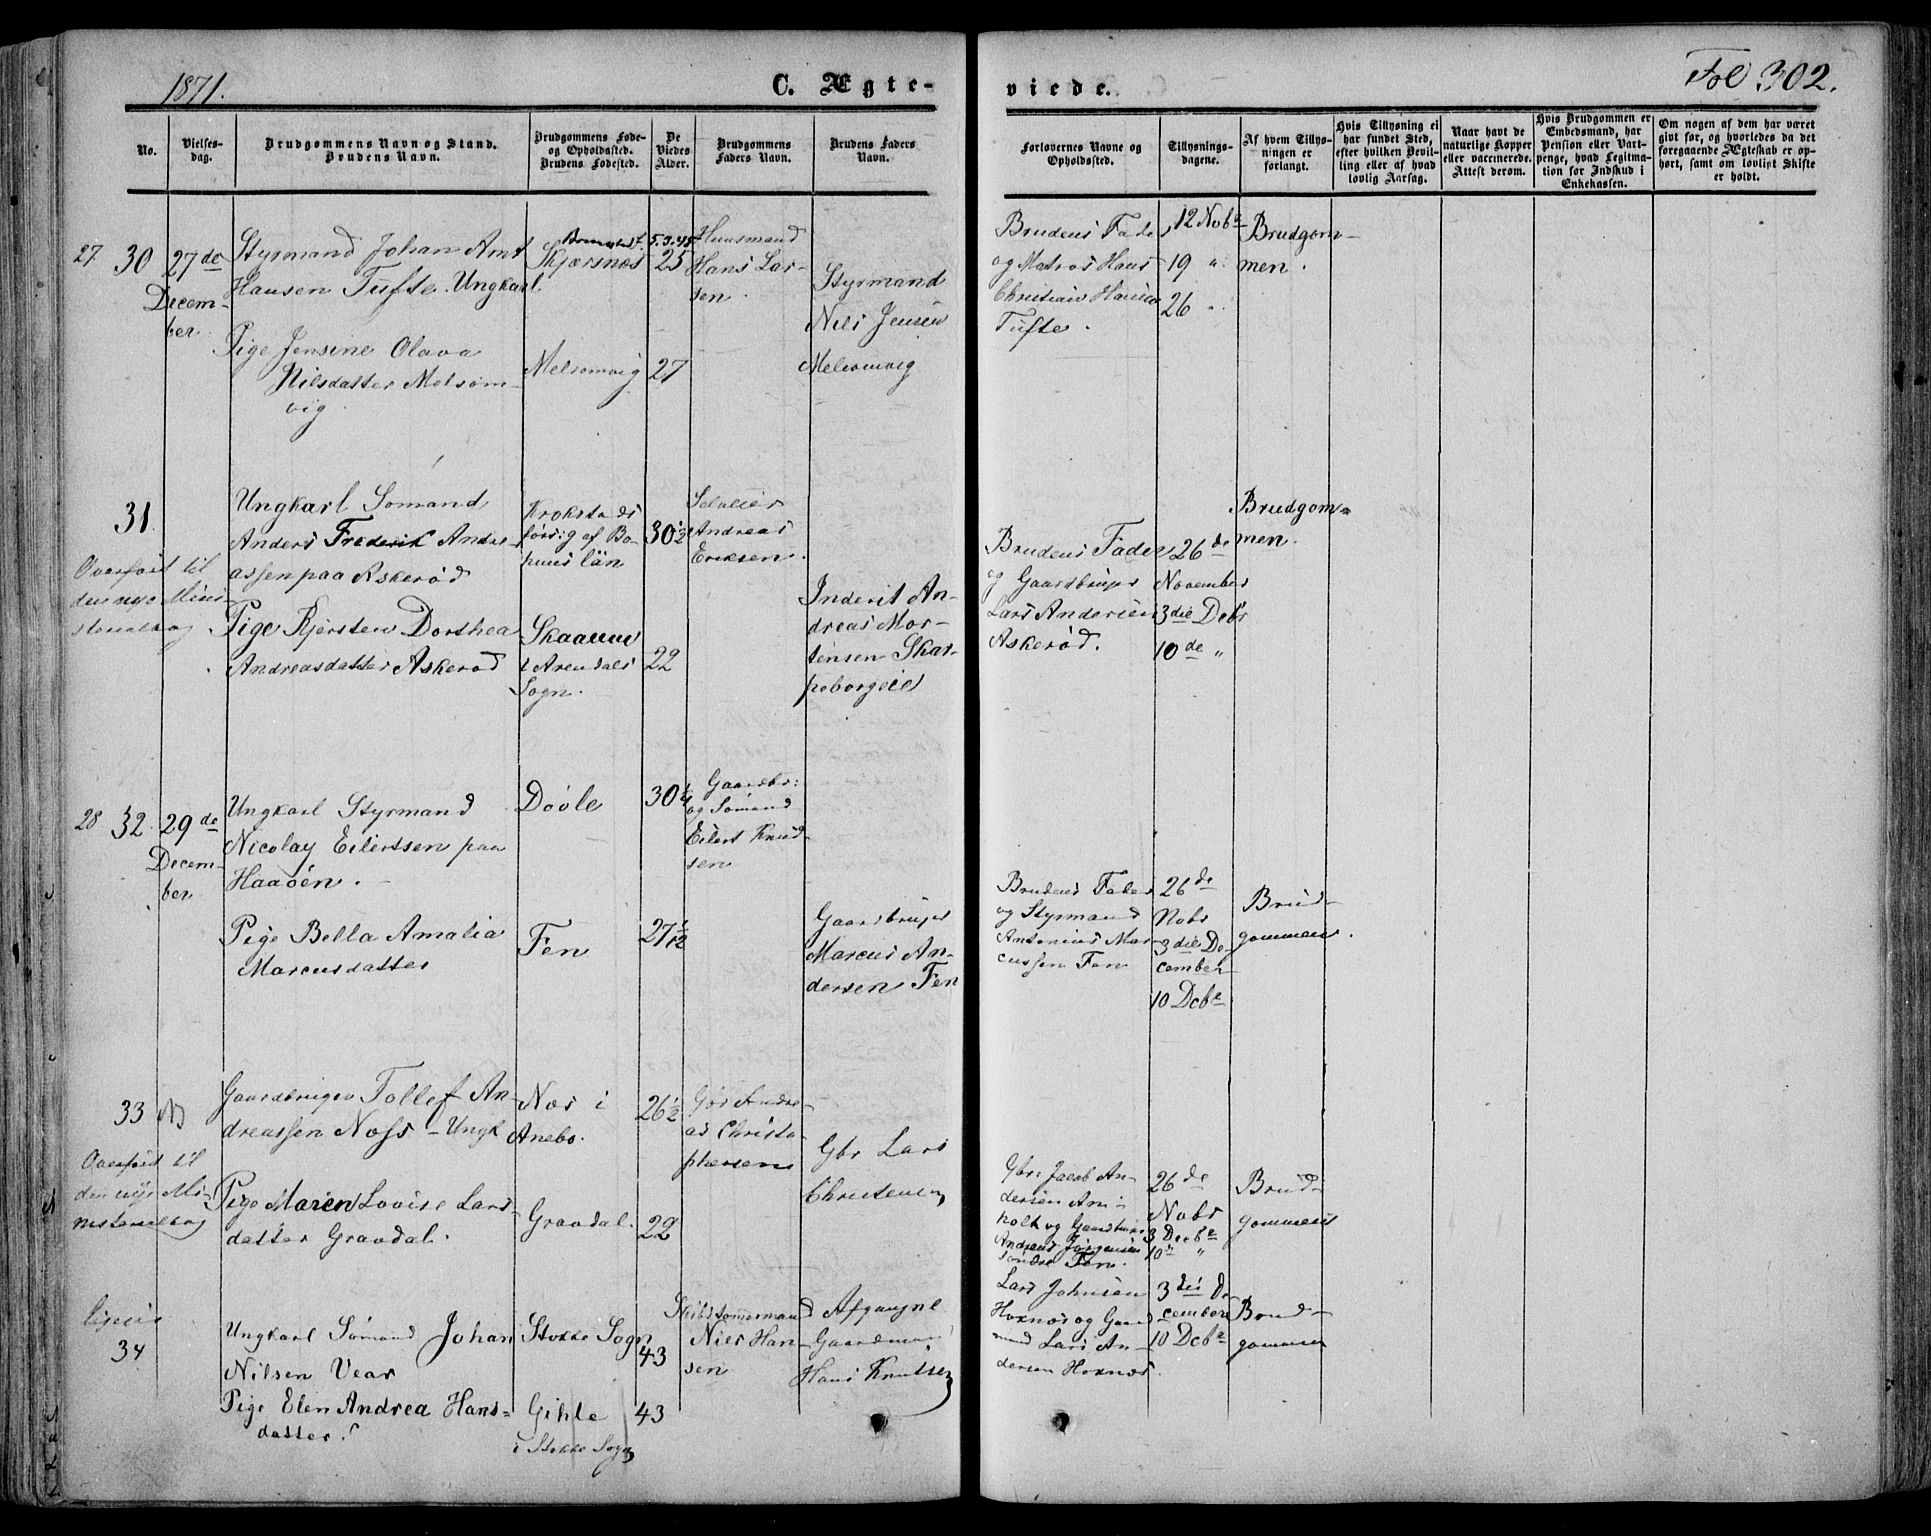 1871.
C. Ægte-
viede.
Fol 302.
No.
Vielses-
dag.
Brudgommens Navn og Stand.
Brudens Navn.
Brudgommens Føde-
og Opholdssted.
Brudens Fødested.
De
Viedes
Alder.
Brudgommens
Faders Navn.
Brudens Faders
Navn.
Forlovernes Navne og
Opholdssted.
Tillysnings-
dagene.
Af hvem Tillys-
ningen er
forlangt.
Hvis Tillysning ei
har fundet Sted,
efter hvilken Bevil-
ling eller af hvad
lovlig Aarsag.
Naar havt de
naturlige Kopper
eller vaccinerede.
Attest derom.
Hvis Brudgommen er
Embedsmand, har
Pension eller Vart-
penge, hvad Legitima-
tion for Indskud i
Enkekassen.
Om nogen af dem har været
givt før, og hvorledes da det
foregaaende Ægteskab er op-
hørt, samt om lovligt Skifte
er holdt.
27
30
27de
Decem-
ber
Styrmand Johan Amt
Hansen Tufte. Ungkarl
Pige Jensine Olava
Nilsdatter Melsom-
vig
Skjærsnæs
Melsomvig
5.3.45
25
27
Huusmand
Hans Lar-
sen.
Styrmand
Nils Jensen
Melsomvig
Brudens Fader
og Matros Hans
Christian Hansen
Tufte.
12 Nobr
19 "
26 "
Brudgom-
men.
31
Overført til
den nye Mini-
sterialbog
Ungkarl Sømand
Anders Frederik Andre-
assen paa Askerød
Pige Kjersten Dorthea
Andreasdatter Askerød
Krokstads
försig af Bo-
huus län
Skaanne
i Arendals
Sogn.
30½
22
Soldat
Andreas
Eriksen.
Inderst An-
dreas Mor-
tensen Skar-
poborgeie
Brudens Fader
og Gaardbruger
Lars Andersen
Askerød.
26de
November
3die Debr
10de "
Brudgom-
men.
28
32
29de
Decem-
ber
Ungkarl Styrmand
Nicolay Eilertsen paa
Haaöen.
Pige Bella Amalia
Marcusdatter
Döole
Fen
30¼
27 1/12
Gaardbr:
og Sømand
Eilert Knud-
sen
Gaardbruger
Marcus An-
dersen Fen
Brudens Fader
og Styrmand
Antonius Mar-
cussen Fen
26de
Nobr
3die De-
cember
10 Dcbr
Brud-
gommens.
33
Overført til
den nye Mi-
nisterialbog
Gaardbruger Tollef An-
dreassen Næss - Ungk
Pige Maren Lovise Lars
datter Graadal.
Næs i
Anebo.
Graadal.
26½
22
Gbr Andre-
as Christo-
phersen
Gbr Lars
Christensen
Gbr: Jacob An-
dersen Am-
holt og Gaardbruger
Andreas Jørgensen
søndre Fen.
26de
Nobr
3 Decbr
10de "
Brud-
gommens
ligesaa
34
Ungkarl Sømand Johan
Nilsen Vear
Pige Elen Andrea Hans-
datter.
Stokke Sogn
Gihle
i Stokke Sogn
43
43
Skibstømmermand
Niels Han-
sen
Afgangne
Gaardmand
Hans Knutsen
Lars Johnsen
Hoxnæs og Gaard
mand Lars An-
dersen Hoxnæs.
3die De-
cember
10 Dcbr
Brud-
gommen